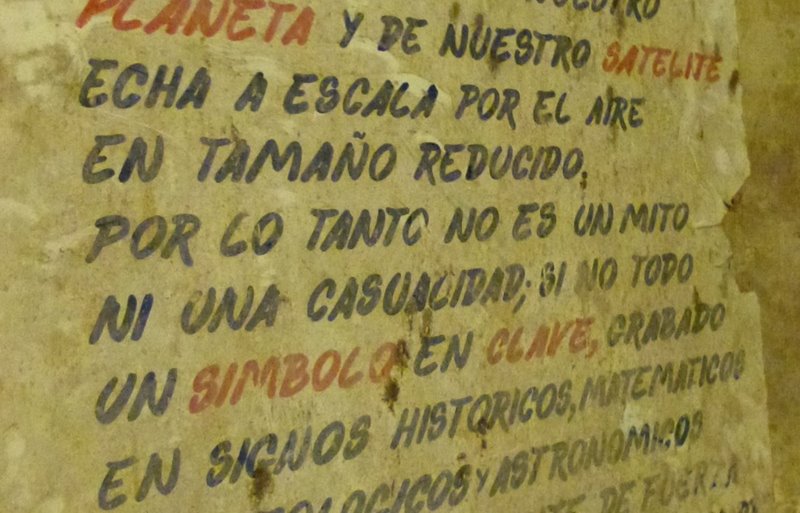 NUESTRO
PLANETA Y DE NUESTRO SATELITE
ECHA A ESCALA POR EL AIRE
EN TAMAÑO REDUCIDO.
POR LO TANTO NO ES UN MITO
NI UNA CASUALIDAD; SI NO TODO
UN SIMBOLO EN CLAVE, GRABADO
EN SIGNOS HISTORICOS, MATEMATICOS
OLOGICOS Y ASTRONOMICOS
DE FUERZA